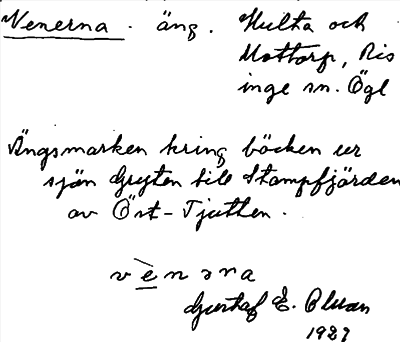 Venerna. äng. Hulta och
Mottorp, Ris
inge sn. Ögl
Ängsmarken kring bäcken ur
sjön Gryten till Stampfjärden
av Öst-Tjutten.
vènəna
Gustaf E. Olsson
1927